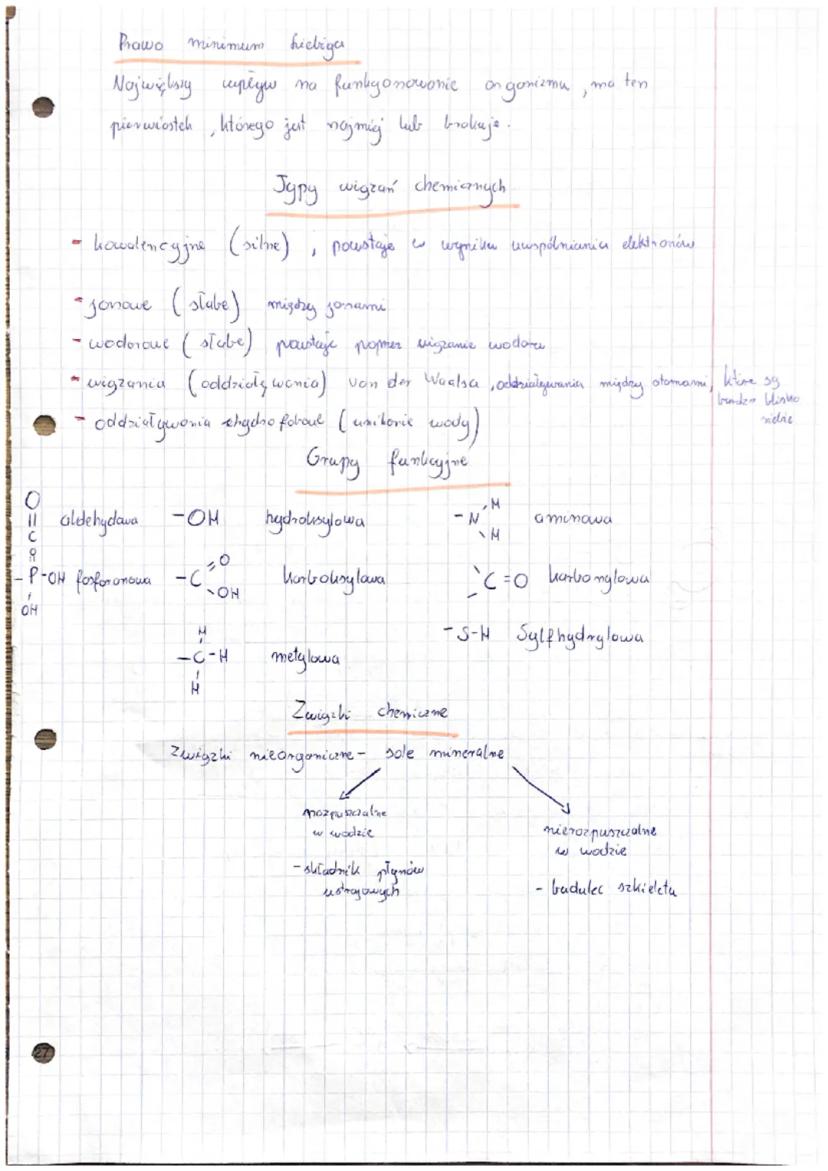 Prawo minimum Liebiga
Największy wpływ na funkcjonowanie organizmu, ma ten
pierwiastek, którego jest najmniej lub brakuje.
Typy wiązań chemicznych
- kowalencyjne (silne), powstaje w wyniku uwspólniania elektronów
- jonowe (słabe) między jonami
- wodorowe (słabe) powstaje poprzez wiązanie wodoru
- wiązania (oddziaływania) van der Waalsa, oddziaływania między atomami, które są
bardzo blisko
siebie
- oddziaływania hydrofobowe (unikanie wody)
Grupy funkcyjne
O
||
C aldehydowa -OH hydroksylowa -N H H aminowa
O
-P-OH fosforanowa -C =O OH karboksylowa C=O karbonylowa
OH
-S-H Sylfhydrylowa
H
-C-H metylowa
H
Związki chemiczne
Związki nieorganiczne - sole mineralne
rozpuszczalne
w wodzie
- składnik płynów
ustrojowych
nierozpuszczalne
w wodzie
- budulec szkieletu
27